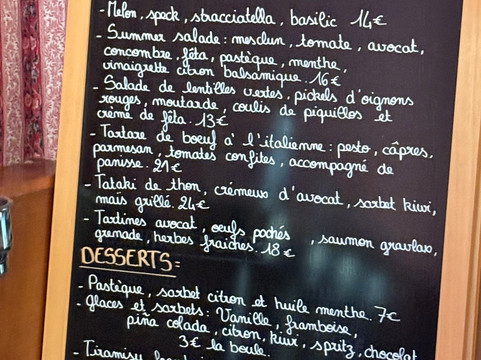 - Melon, speck, stracciatella, basilic 14€
- Summer salade : mesclun, tomate, avocat,
concombre, féta, pastèque, menthe,
vinaigrette citron balsamique. 16€
- Salade de lentilles vertes, pickels d'oignons
rouges, moutarde, coulis de piquillos et
crème de féta. 13€
- Tartare de boeuf à l'italienne : pesto, câpres,
parmesan, tomates confites, accompagné de
panisse. 21€
- Tataki de thon, crémeux d'avocat, sorbet kiwi,
maïs grillé. 24€
- Tartines avocat, oeufs pochés , saumon gravlax,
grenade, herbes fraîches. 18€
DESSERTS :
- Pastèque, sorbet citron et huile menthe. 7€
- Glaces et sorbets : Vanille, framboise,
piña colada, citron, kiwi, spritz, chocolat
3€ la boule.
- Tiramisu